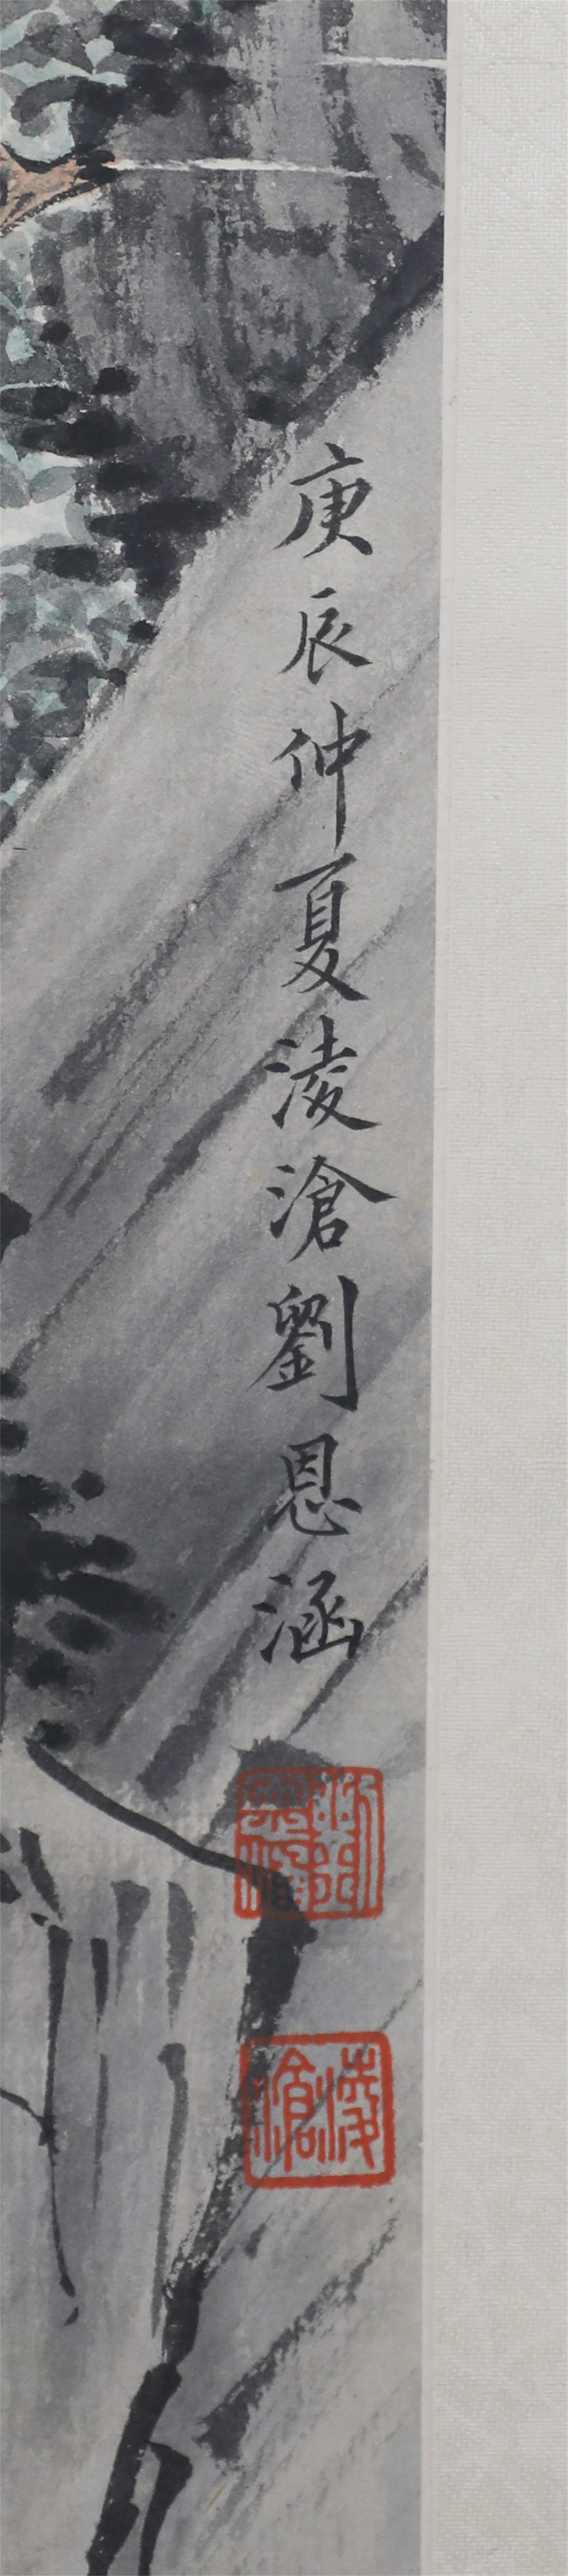 庚辰仲夏淩滄劉恩涵
劉恩涵
淩滄